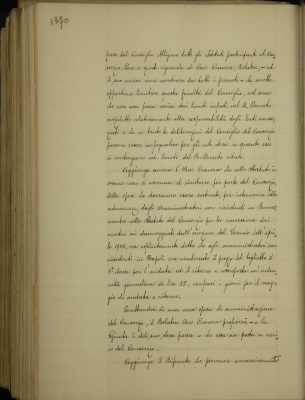 1370
pare del Consiglio obbligano tutti gli Istituti partecipanti al Con-
sorzio. Ora a questo riguardo il Cav. Cravino, Relatore, - ed
il suo avviso viene condiviso da tutti i presenti - che sarebbe
opportuno limitare questa facoltà del Consiglio, nel senso
che essa non possa uscire dai limiti imposti nel R. Decreto
suddetto relativamente alla responsabilità degli Enti consor-
ziati e che in tanto le deliberazioni del Consiglio del Consorzio
possano essere impegnative per gli enti stessi in quanto esse
si contengano nei limiti del R. Decreto citato.
Aggiunge ancora il Cav. Cravino che nello Statuto in
esame non si accenna al rimborso, per parte del Consorzio
delle spese che dovranno essere sostenute per intervenire alle
adunanze, dagli Amministratori non residenti in Roma,
mentre nello Statuto del Consorzio per la concessione dei
mutui ai danneggiati dall'eruzione del Vesuvio dell'apri-
le 1906, era esplicitamente detto che agli amministratori non
residenti in Napoli era rimborsato il prezzo del biglietto di
1ª classe per l'andata ed il ritorno e corrisposta un'inden-
nità giornaliera di lire 15, compresi i giorni per il viag-
gio di andata e ritorno.
Trattandosi di una vera spesa di amministrazione
del Consorzio, il Relatore Cav. Cravino proporrà - e la
Giunta è dello stesso parere - che essa sia posta a cari-
co del Consorzio.
Aggiunge il Relatore